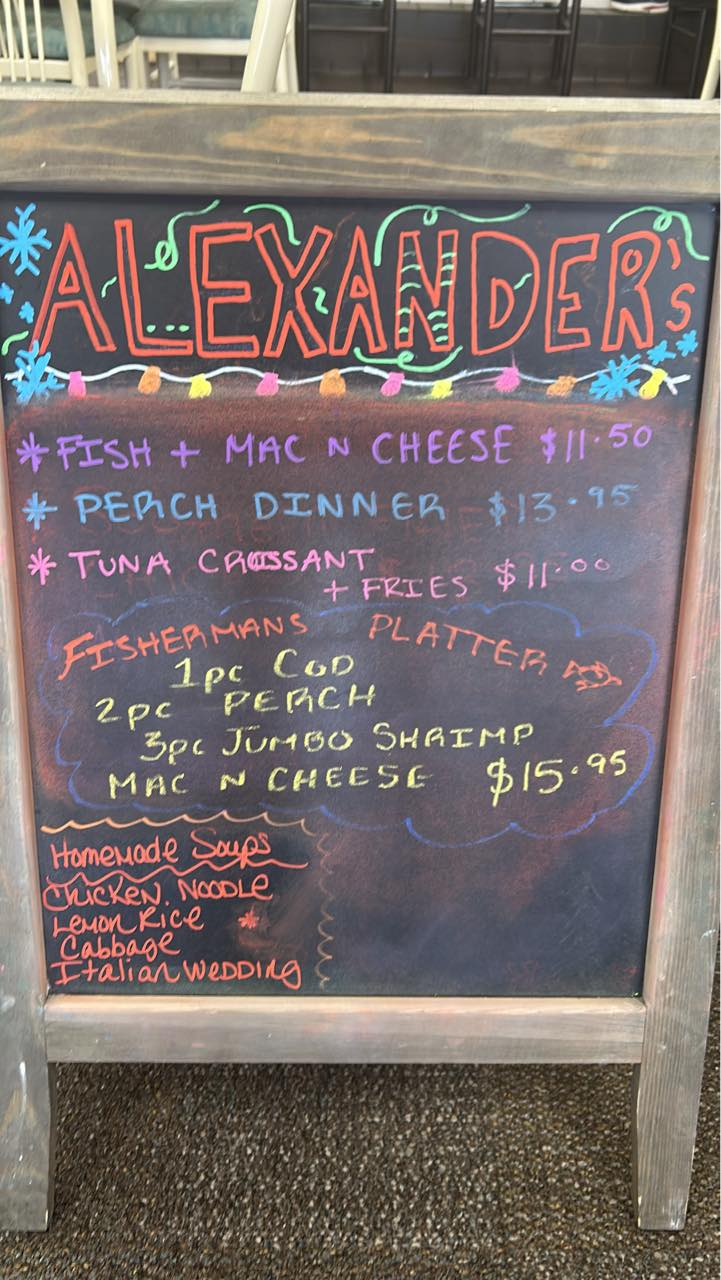 ALEXANDER's
* FISH + MAC N CHEESE $11.50
* PERCH DINNER $13.95
* TUNA CROISSANT
+ FRIES $11.00
FISHERMANS PLATTER
1pc COD
2pc PERCH
3pc JUMBO SHRIMP
MAC N CHEESE $15.95
Homemade Soups
Chicken Noodle
Lemon Rice *
Cabbage
Italian Wedding